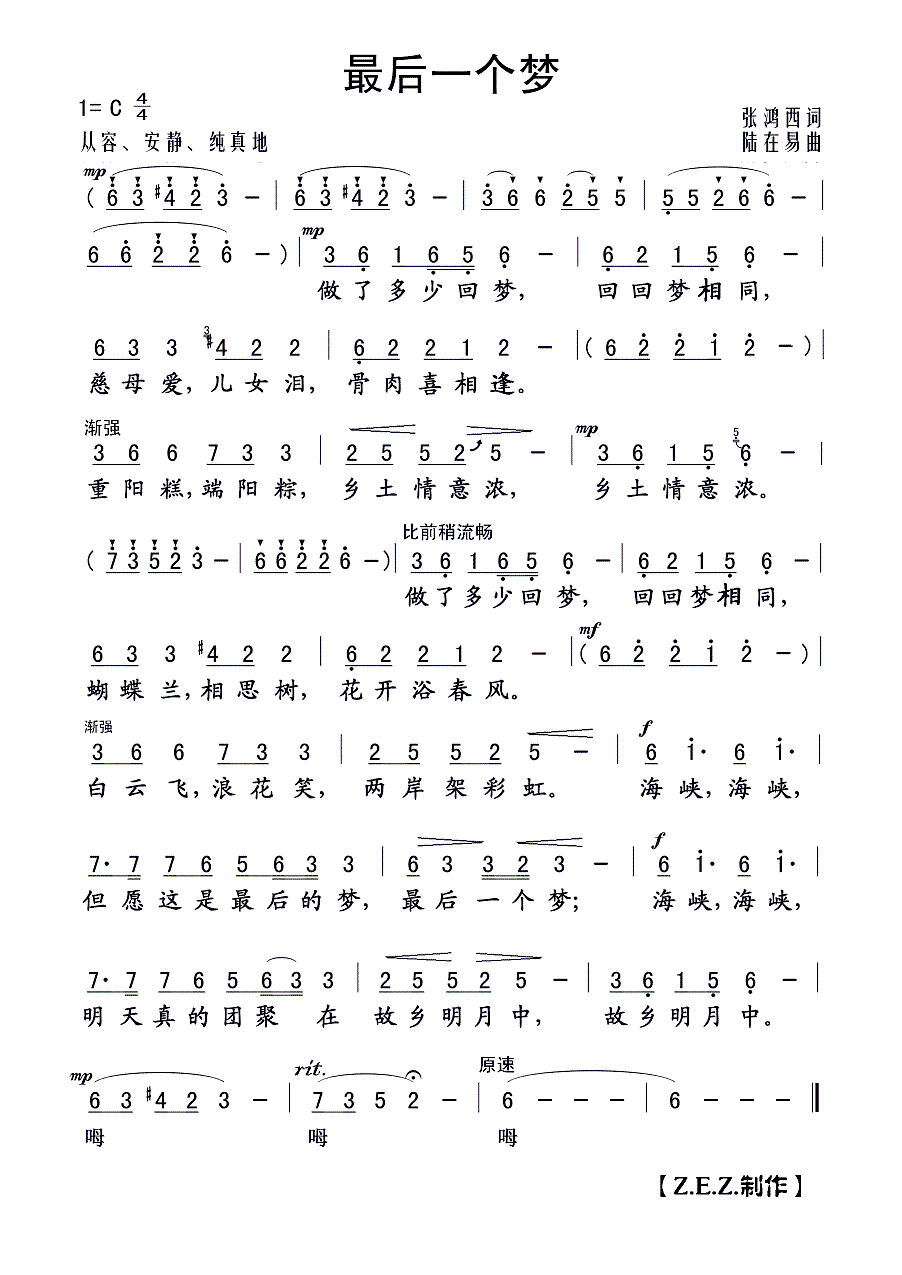 最后一个梦
1= C 4/4
张鸿西词
从容、安静、纯真地
陆在易曲
mp
( 6 3 #4 2 3 － | 6 3 #4 2 3 － | 3 6 6 2 5 5 | 5 5 2 6 6 －
mp
6 6 2 2 6 － ) | 3 6 1 6 5 6 － | 6 2 1 5 6 － |
做了多少回梦, 回回梦相同,
3
6 3 3 #4 2 2 | 6 2 2 1 2 － | ( 6 2 2 1 2 － ) |
慈母爱,儿女泪, 骨肉喜相逢。
渐强 mp 5
3 6 6 7 3 3 | 2 5 5 2 5 － | 3 6 1 5 6 － |
重阳糕,端阳粽, 乡土情意浓, 乡土情意浓。
比前稍流畅
( 7 3 5 2 3 － | 6 6 2 2 6 － ) | 3 6 1 6 5 6 － | 6 2 1 5 6 － |
做了多少回梦, 回回梦相同,
mf
6 3 3 #4 2 2 | 6 2 2 1 2 － | ( 6 2 2 1 2 － ) |
蝴蝶兰,相思树, 花开浴春风。
渐强 f
3 6 6 7 3 3 | 2 5 5 2 5 － | 6 1· 6 1· |
白云飞,浪花笑, 两岸架彩虹。 海峡,海峡,
f
7· 7 7 6 5 6 3 3 | 6 3 3 2 3 － | 6 1· 6 1· |
但愿这是最后的梦, 最后一个梦; 海峡,海峡,
7· 7 7 6 5 6 3 3 | 2 5 5 2 5 － | 3 6 1 5 6 － |
明天真的团聚 在 故乡明月中, 故乡明月中。
mp rit. 原速
6 3 #4 2 3 － | 7 3 5 2 － | 6 － － － | 6 － － － ‖
呣 呣 呣
【Z.E.Z.制作】